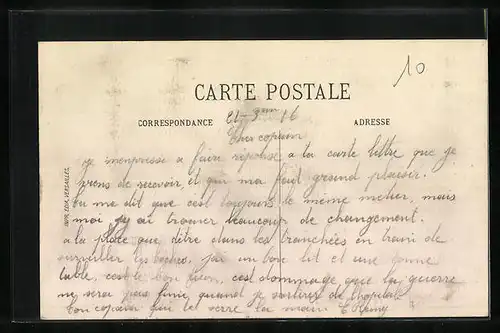 10
CARTE POSTALE
CORRESPONDANCE
ADRESSE
IMP. EDIA, VERSAILLES
21-3 16
Cher copain
je m'enpresse a faire réponse a la carte lettre que je
viens de recevoir et qui ma fait grand plaisir.
tu me dit que cest toujours le même metier, mais
moi jy ai trouver beaucoup de changement.
a la place que dêtre dans les tranchées en train de
surveiller les boches, jai un bon lit et une bonne
table, cest le bon filon, cest dommage que la guerre
ne sera pas finie quand je sortirez de lhopital
ton copain qui te serre la main E Remy